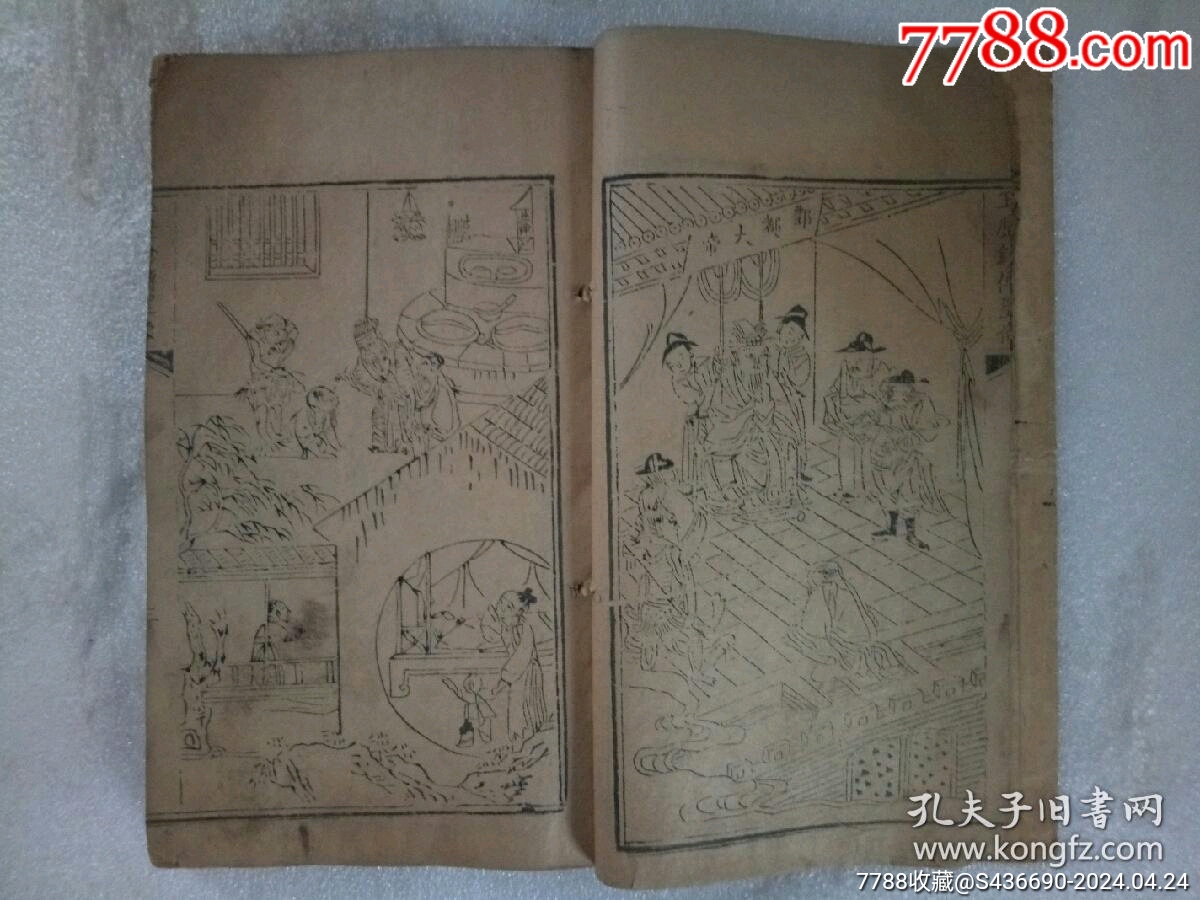 7788.com
酆都大帝
孔夫子旧书网
www.kongfz.com
7788收藏@S436690-2024.04.24